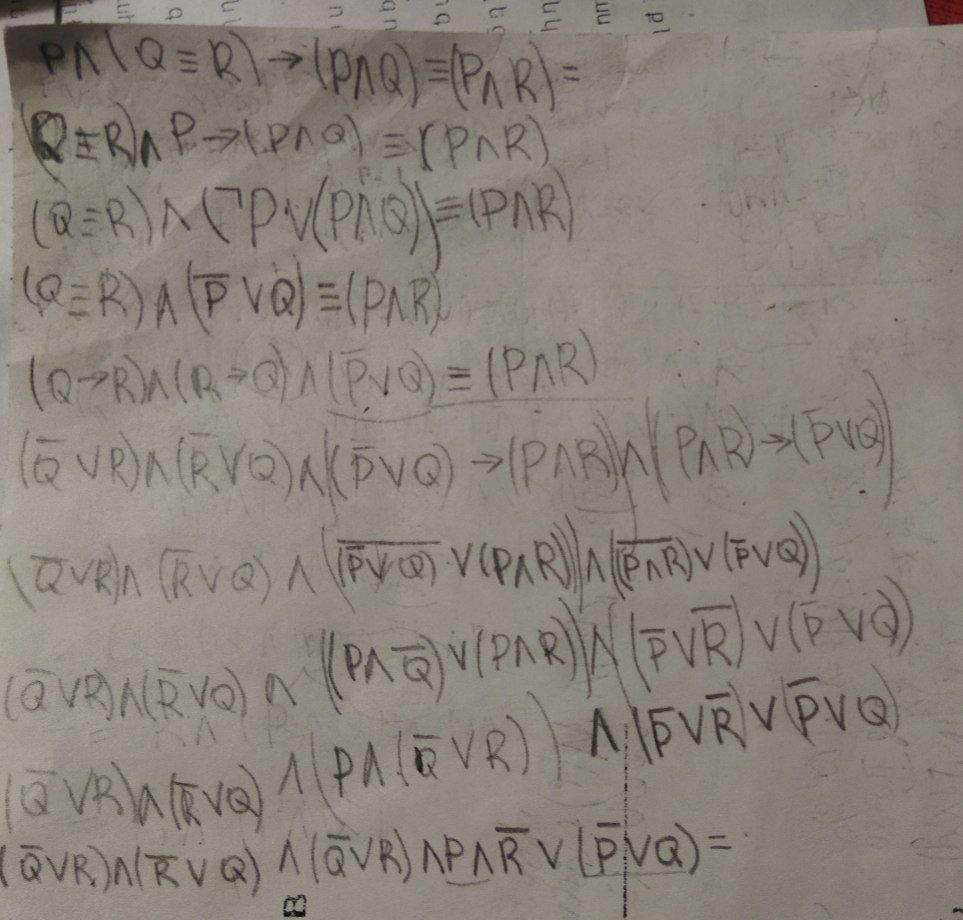 P∧(Q≡R)→(P∧Q)≡(P∧R)=
(Q≡R)∧P→(P∧Q)≡(P∧R)
(Q≡R)∧(¬P∨(P∧Q))≡(P∧R)
(Q≡R)∧(P̅∨Q)≡(P∧R)
(Q→R)∧(R→Q)∧(P̅∨Q)≡(P∧R)
(Q̅∨R)∧(R̅∨Q)∧((P̅∨Q)→(P∧R))∧((P∧R)→(P̅∨Q))
(Q̅∨R)∧(R̅∨Q)∧((P̅̅∨̅Q̅)∨(P∧R))∧((P̅∧̅R̅)∨(P̅∨Q))
(Q̅∨R)∧(R̅∨Q)∧((P∧Q̅)∨(P∧R))∧(P̅∨R̅)∨(P̅∨Q)
(Q̅∨R)∧(R̅∨Q)∧(P∧(Q̅∨R))∧(P̅∨R̅)∨(P̅∨Q)
(Q̅∨R)∧(R̅∨Q)∧(Q̅∨R)∧P∧R̅∨(P̅∨Q)=